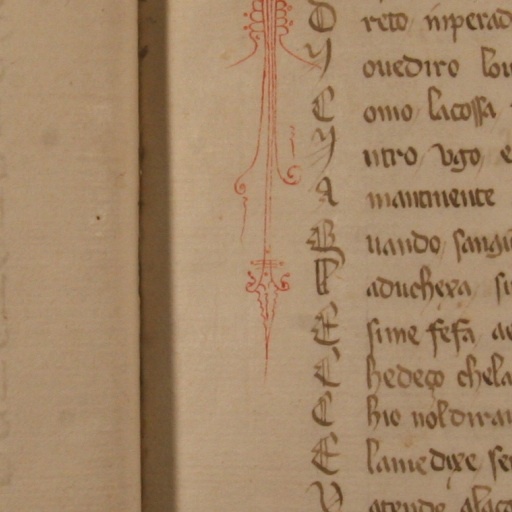 D reto inperad
Y ouediro lou
C omo lacossa
Y ntro vgo e
A mantinente
B uando sangu
L aduchera si
E sime fefa ae
C hedeço chela
C hio noldirai
E lame dixe se
V atende alaco